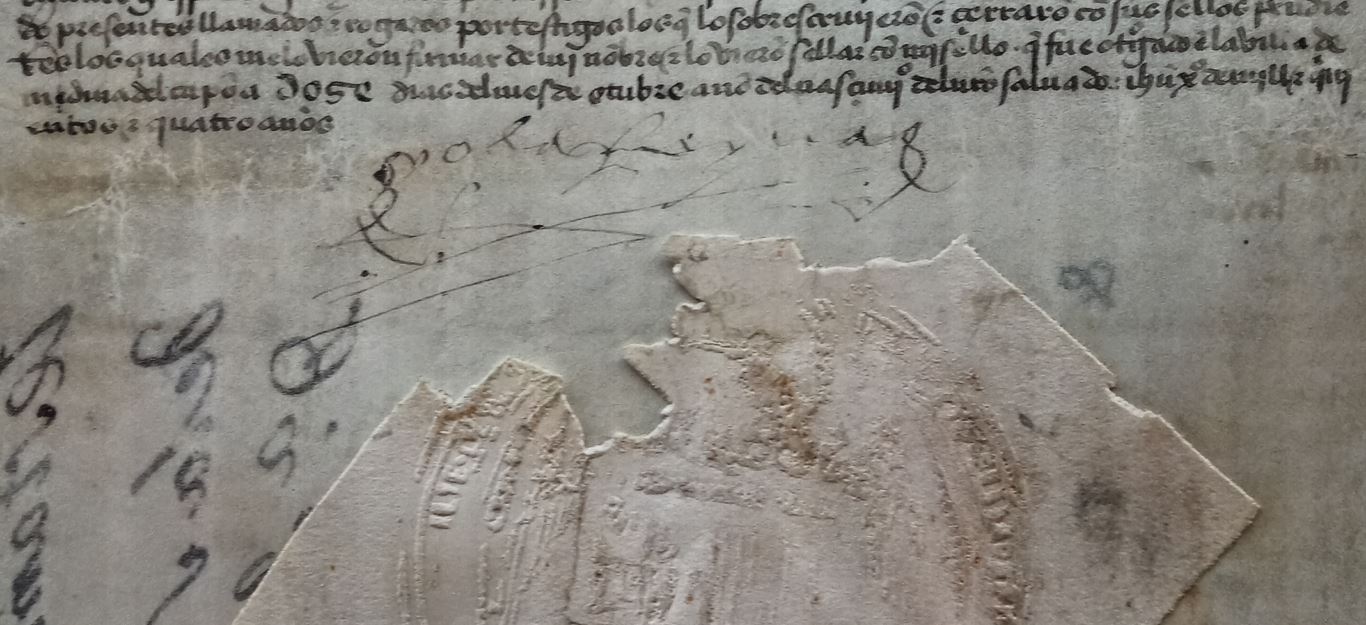 de presentes llamados ⁊ rogados por testigos los q̃ lo sobrescriuierõ ⁊ cerrarõ cõ sus sellos pendiẽ
tes los quales me lo vieron firmar de mj nõbre ⁊ lo vierõ sellar cõ mj sello q̃ fue otorgado ẽ la villa de
medina del canpo a doze dias del mes de otubre año del nasçimjº del nr̃o saluador ihũ xº de mjll ⁊ qujnj
entos ⁊ quatro años
yo la Reyna